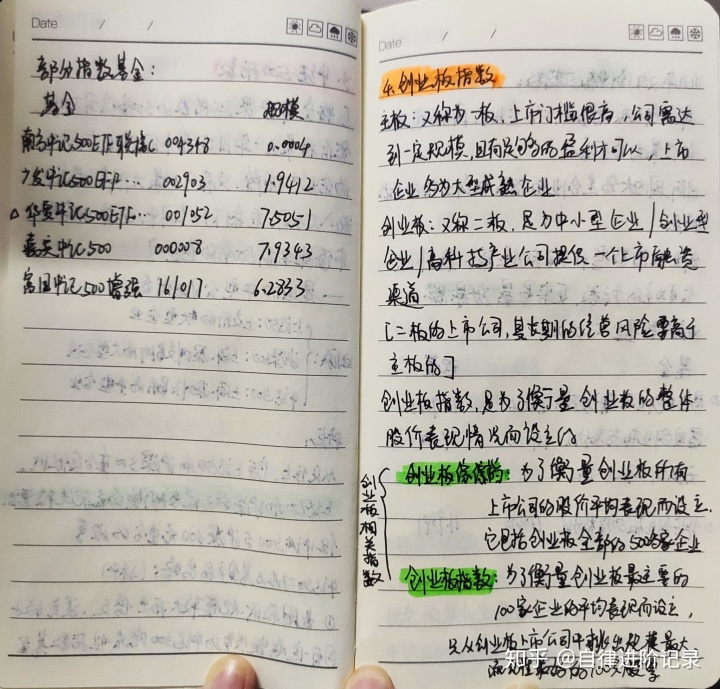 Date / /
部分指数基金:
基金 规模
南方中证500ETF联接C 004348 0.0004
广发中证500ETF... 002903 1.9412
△ 华夏中证500ETF... 001052 7.5051
嘉实中证500 000008 7.9343
富国中证500增强 161017 6.2833
Date / /
4.创业板指数
主板:又称为一板,上市门槛很高,公司需达
到一定规模,且有足够多的盈利才可以,上市
企业多为大型成熟企业
创业板:又称二板,是为中小型企业/创业型
企业/高科技产业公司提供一个上市融资
渠道
[二板的上市公司,其长期的经营风险要高于
主板的]
创业板指数,是为了衡量创业板的整体
股价表现情况而设立的
创业板相关指数
创业板综指:为了衡量创业板所有
上市公司的股价平均表现而设立.
它包括创业板全部的500多家企业
创业板指数:为了衡量创业板最主要的
100家企业的平均表现而设立,
只从创业板上市公司中挑出规模最大
的100只股票
知乎 @自律进阶记录